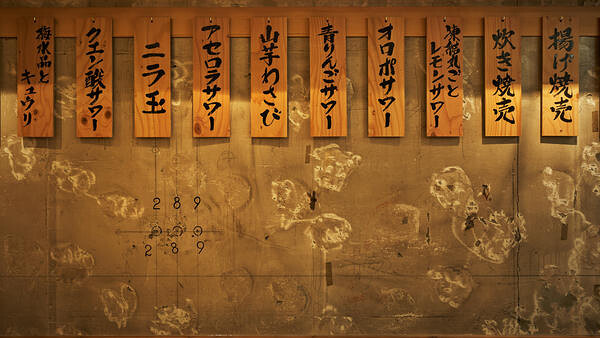 揚げ焼売
炊き焼売
凍結丸ごと
レモンサワー
オロポサワー
青りんごサワー
山芋わさび
アセロラサワー
ニラ玉
クエン酸サワー
梅水晶と
キュウリ
2 8 9
2 8 9